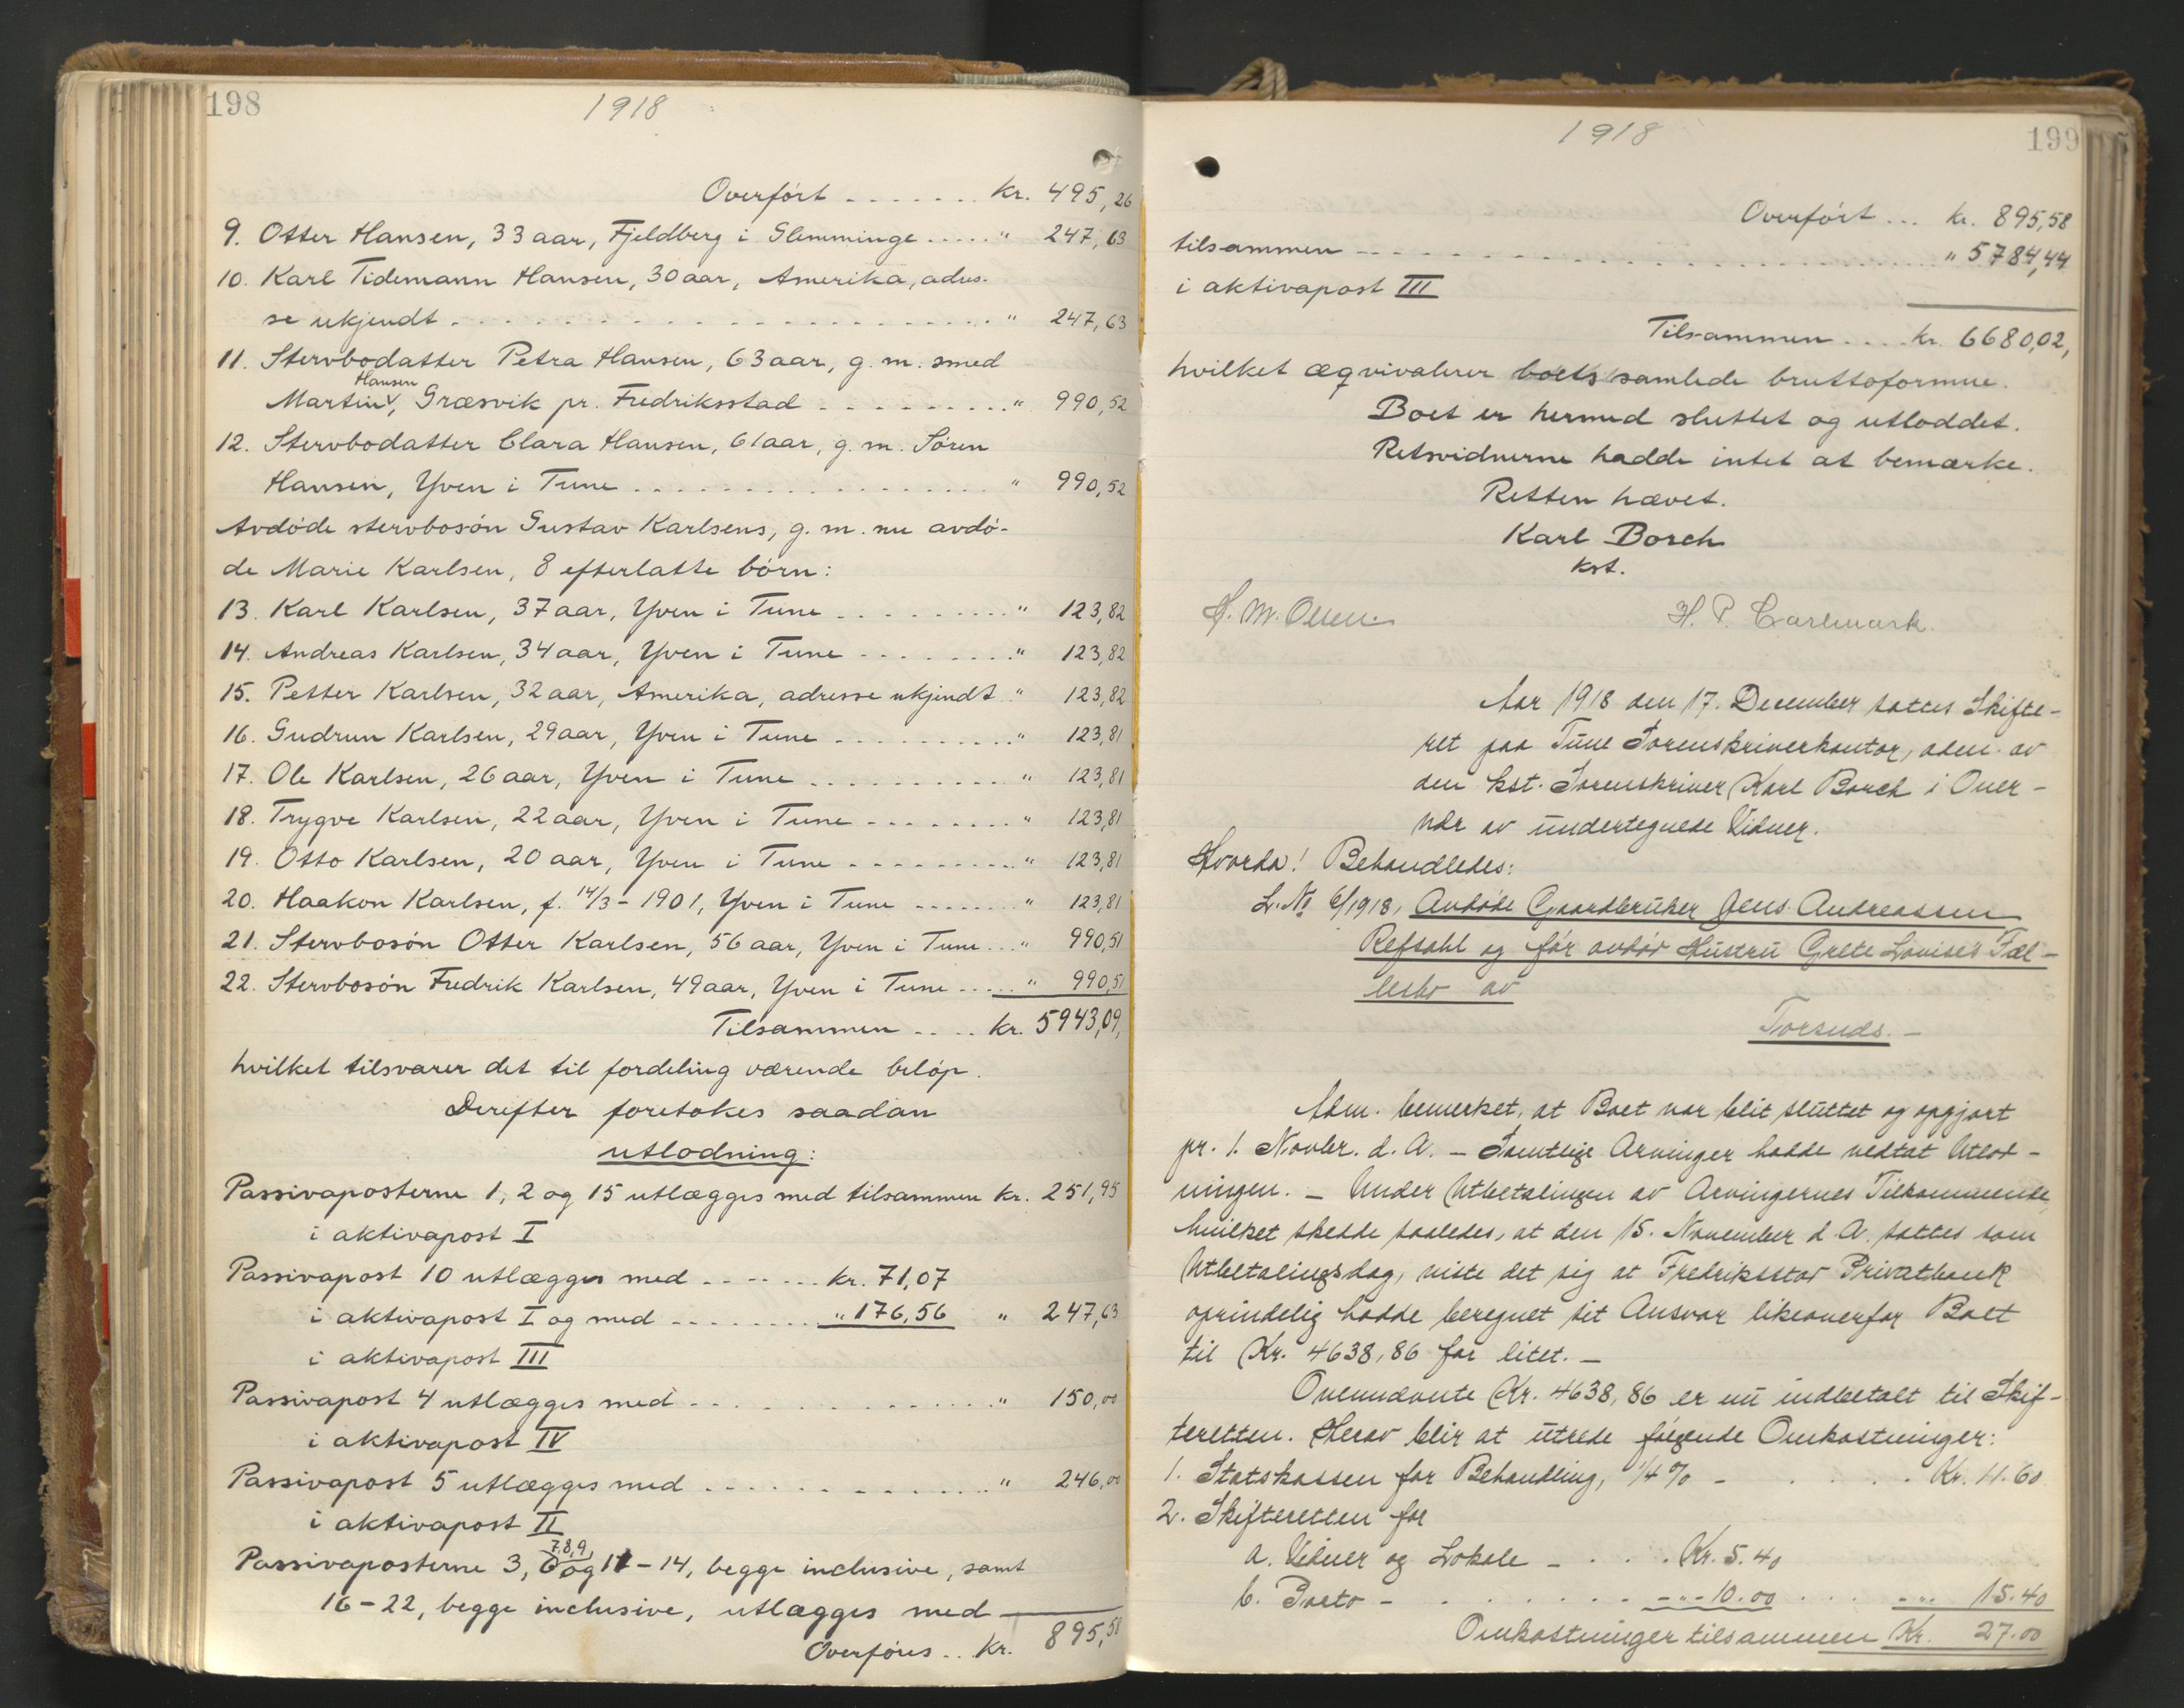 198
1918
Overført ....... kr. 495,26
9. Otter Hansen, 33 aar, Fjeldberg i Glemminge ..... " 247,63
10. Karl Tidemann Hansen, 30 aar, Amerika, adres-
se ukjendt ....................... " 247,63
11. Stervbodatter Petra Hansen, 63 aar, g. m. smed
Hansen
Martin v, Græsvik pr. Fredriksstad ......... " 990,52
12. Stervbodatter Clara Hansen, 61 aar, g. m. Søren
Hansen, Yven i Tune ................. " 990,52
Avdøde stervbosøn Gustav Karlsens, g. m. nu avdø-
de Marie Karlsen, 8 efterlatte børn:
13. Karl Karlsen, 37 aar, Yven i Tune ......... " 123,82
14. Andreas Karlsen, 34 aar, Yven i Tune ........ " 123,82
15. Petter Karlsen, 32 aar, Amerika, adresse ukjendt " 123,82
16. Gudrun Karlsen, 29 aar, Yven i Tune .......... " 123,81
17. Ole Karlsen, 26 aar, Yven i Tune ........... " 123,81
18. Trygve Karlsen, 22 aar, Yven i Tune ........ " 123,81
19. Otto Karlsen, 20 aar, Yven i Tune ......... " 123,81
20. Haakon Karlsen, f. 14/3 - 1901, Yven i Tune ....... " 123,81
21. Stervbosøn Otter Karlsen, 56 aar, Yven i Tune ... " 990,51
22. Stervbosøn Fredrik Karlsen, 49 aar, Yven i Tune ..... " 990,51
Tilsammen .... kr. 5943,09,
hvilket tilsvarer det til fordeling værende beløp.
Derefter foretokes saadan
utlodning:
Passivaposterne 1, 2 og 15 utlægges med tilsammen kr. 251,95
i aktivapost I
Passivapost 10 utlægges med ....... kr. 71,07
i aktivapost I og med ........ " 176,56 " 247,63
i aktivapost III
Passivapost 4 utlægges med ............... " 150,00
i aktivapost IV
Passivapost 5 utlægges med .............. " 246,00
i aktivapost II
7,8,9,
Passivaposterne 3, 6 og 11-14, begge inclusive, samt
16-22, begge inclusive, utlægges med
Overføres .. kr. 895,58
1918
199
Overført ... kr. 895,58
tilsammen ............................ " 5784,44
i aktivapost III
Tilsammen .... kr. 6680,02,
hvilket æqvivalerer boets samlede bruttoformue.
Boet er hermed sluttet og utloddet.
Retsvidnerne hadde intet at bemærke.
Retten hævet.
Karl Borch
kst.
H. M. Olsen. H. P. Carlmark.
Aar 1918 den 17. December sattes Skifte-
ret paa Tune Sorenskriverkontor, adm. av
den kst. Sorenskriver Karl Borch i Over-
vær av undertegnede Vidner.
Hvorda! Behandledes:
L. No 6/1918, Avdøde Gaardbruker Jens Andreassen
Refsahl og før avdød Hustru Grete Lovise's Fæl-
lesbo av
Torsnds. -
Adm. bemerket, at Boet var blit sluttet og opgjort
pr. 1. Novbr. d. A. - Samtlige Arvinger hadde vedtat Utlod-
ningen. - Under Utbetalingen av Arvingernes Tilkommende,
hvilket skedde saaledes, at den 15. November d. A. sattes som
Utbetalingsdag, viste det sig at Fredriksstad Privatbank
oprindelig hadde beregnet sit Ansvar likeoverfor Boet
til Kr. 4638,86 for litet. -
Ovennævnte Kr. 4638,86 er nu indbetalt til Skif-
teretten. Herav blir at utrede følgende Omkostninger:
1. Statskassen for Behandling, 1/4 % - . . . . . Kr. 11.60
2. Skifteretten for
a. Vidner og Lokale - . . . Kr. 5.40
b. Porto - . . . . . . -"- 10.00 . . . -"- 15.40
Omkostninger tilsammen Kr. 27.00